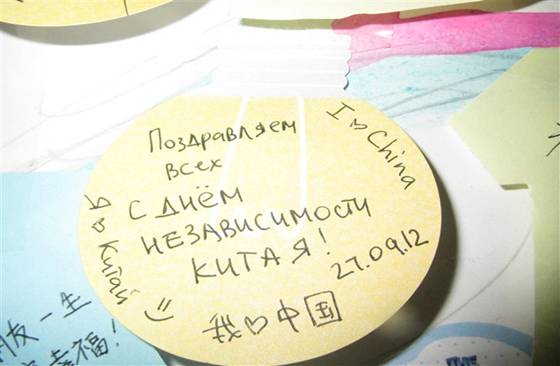 Поздравляем
всех
с днём
независимости
Китая!
27.09.12
I ♡ China
Я ♡ Китай
我♡中国
友一生
幸福!